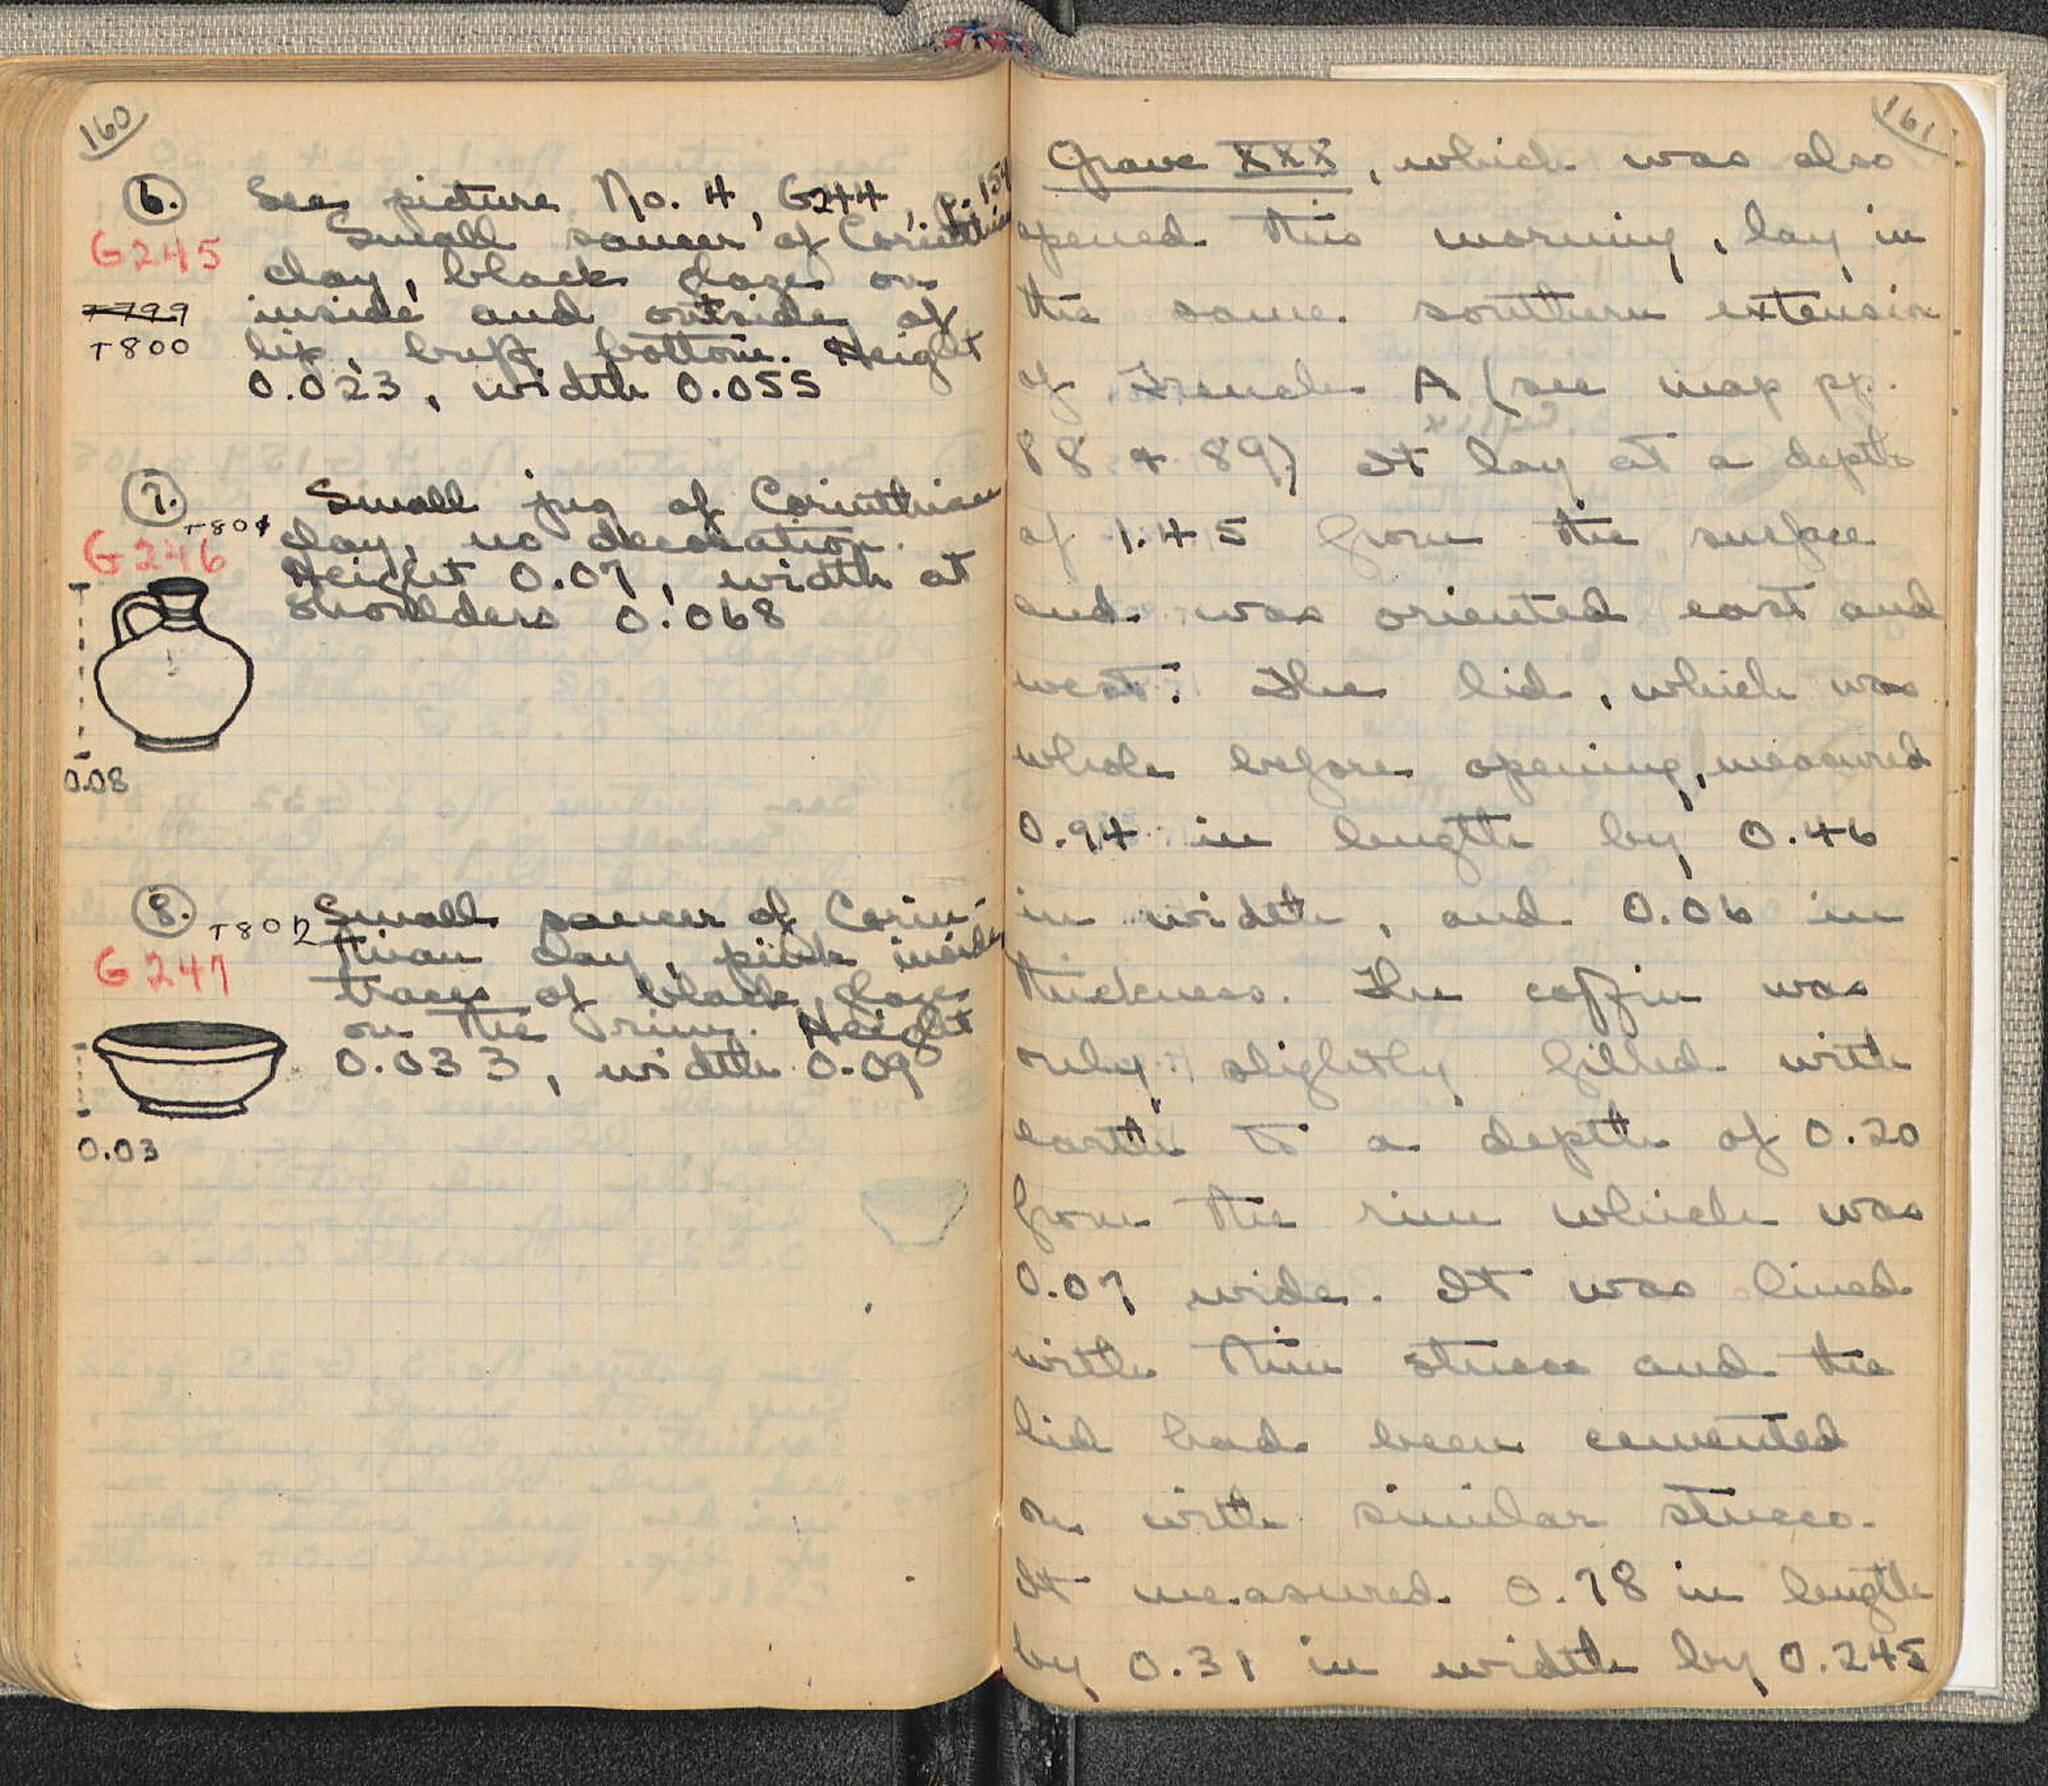 160
6. See picture No. 4, G244, p. 159
G245
Small saucer of Corinthian
clay, black glaze on
T799
inside and outside of
T800
lip, buff bottom. Height
0.023, width 0.055
7. Small jug of Corinthian
T801
G246
clay, no decoration.
Height 0.07, width at
shoulders 0.068
0.08
8. T802 Small saucer of Corin-
G247
thian clay, pink inside,
traces of black glaze
on the rim. Height
0.033, width 0.09
0.03
161
Grave XXX, which was also
opened this morning, lay in
the same southern extension
of Trench A (see map pp.
88 & 89) It lay at a depth
of 1.45 from the surface
and was oriented east and
west. The lid, which was
whole before opening, measured
0.94 in length by 0.46
in width, and 0.06 in
thickness. The coffin was
only slightly filled with
earth to a depth of 0.20
from the rim which was
0.07 wide. It was lined
with thin stucco and the
lid had been cemented
on with similar stucco.
It measured 0.78 in length
by 0.31 in width by 0.245